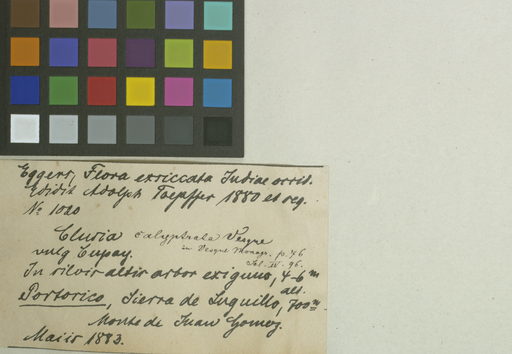 Eggers, Flora exsiccata Indiae occid.
Edidit Adolph Toepffer 1880 et seq.
No 1020
Clusia calyptrata Vesque
in Vesque Monogr. p. 46
vulg Cupay.
In silvis altis arbor exiguus, 4-6 m alt.
Portorico, Sierra de Luquillo, 700 m
Monte de Juan Gomez.
Maiis 1883.